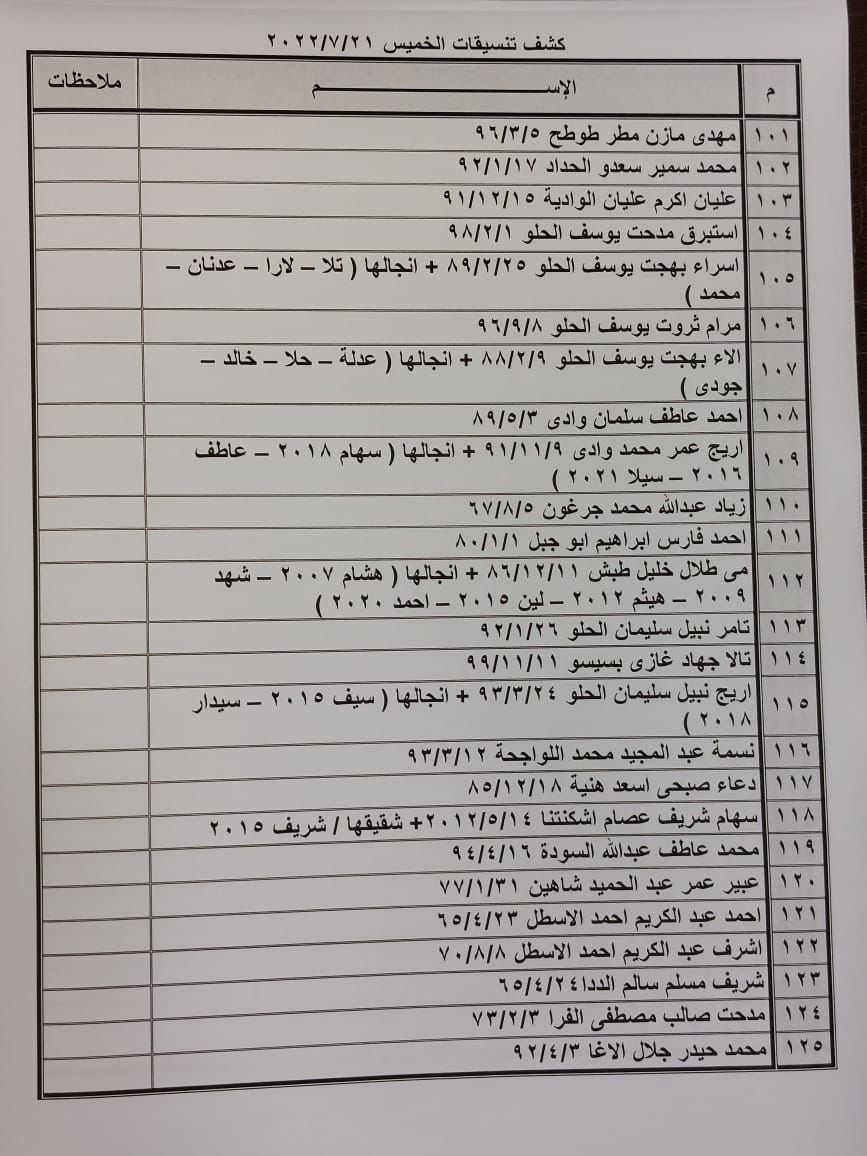 كشف تنسيقات الخميس ٢٠٢٢/٧/٢١
م الإســـــــم ملاحظات
١٠١ مهدى مازن مطر طوطح ٩٦/٣/٥
١٠٢ محمد سمير سعدو الحداد ٩٢/١/١٧
١٠٣ عليان اكرم عليان الوادية ٩١/١٢/١٥
١٠٤ استبرق مدحت يوسف الحلو ٩٨/٢/١
١٠٥ اسراء بهجت يوسف الحلو ٨٩/٢/٢٥ + انجالها ( تلا – لارا – عدنان –
محمد )
١٠٦ مرام ثروت يوسف الحلو ٩٦/٩/٨
١٠٧ الاء بهجت يوسف الحلو ٨٨/٢/٩ + انجالها ( عدلة – حلا – خالد –
جودى )
١٠٨ احمد عاطف سلمان وادى ٨٩/٥/٣
١٠٩ اريج عمر محمد وادى ٩١/١١/٩ + انجالها ( سهام ٢٠١٨ – عاطف
٢٠١٦ – سيلا ٢٠٢١ )
١١٠ زياد عبدالله محمد جرغون ٦٧/٨/٥
١١١ احمد فارس ابراهيم ابو جبل ٨٠/١/١
١١٢ مى طلال خليل طبش ٨٦/١٢/١١ + انجالها ( هشام ٢٠٠٧ – شهد
٢٠٠٩ – هيثم ٢٠١٢ – لين ٢٠١٥ – احمد ٢٠٢٠ )
١١٣ تامر نبيل سليمان الحلو ٩٢/١/٢٦
١١٤ تالا جهاد غازى بسيسو ٩٩/١١/١١
١١٥ اريج نبيل سليمان الحلو ٩٣/٣/٢٤ + انجالها ( سيف ٢٠١٥ – سيدار
٢٠١٨ )
١١٦ نسمة عبد المجيد محمد اللواجحة ٩٣/٣/١٢
١١٧ دعاء صبحى اسعد هنية ٨٥/١٢/١٨
١١٨ سهام شريف عصام اشكنتنا ٢٠١٢/٥/١٤+ شقيقها / شريف ٢٠١٥
١١٩ محمد عاطف عبدالله السودة ٩٤/٤/١٦
١٢٠ عبير عمر عبد الحميد شاهين ٧٧/١/٣١
١٢١ احمد عبد الكريم احمد الاسطل ٦٥/٤/٢٣
١٢٢ اشرف عبد الكريم احمد الاسطل ٧٠/٨/٨
١٢٣ شريف مسلم سالم الددا٦٥/٤/٢٤
١٢٤ مدحت صالب مصطفى الفرا ٧٣/٢/٣
١٢٥ محمد حيدر جلال الاغا ٩٢/٤/٣